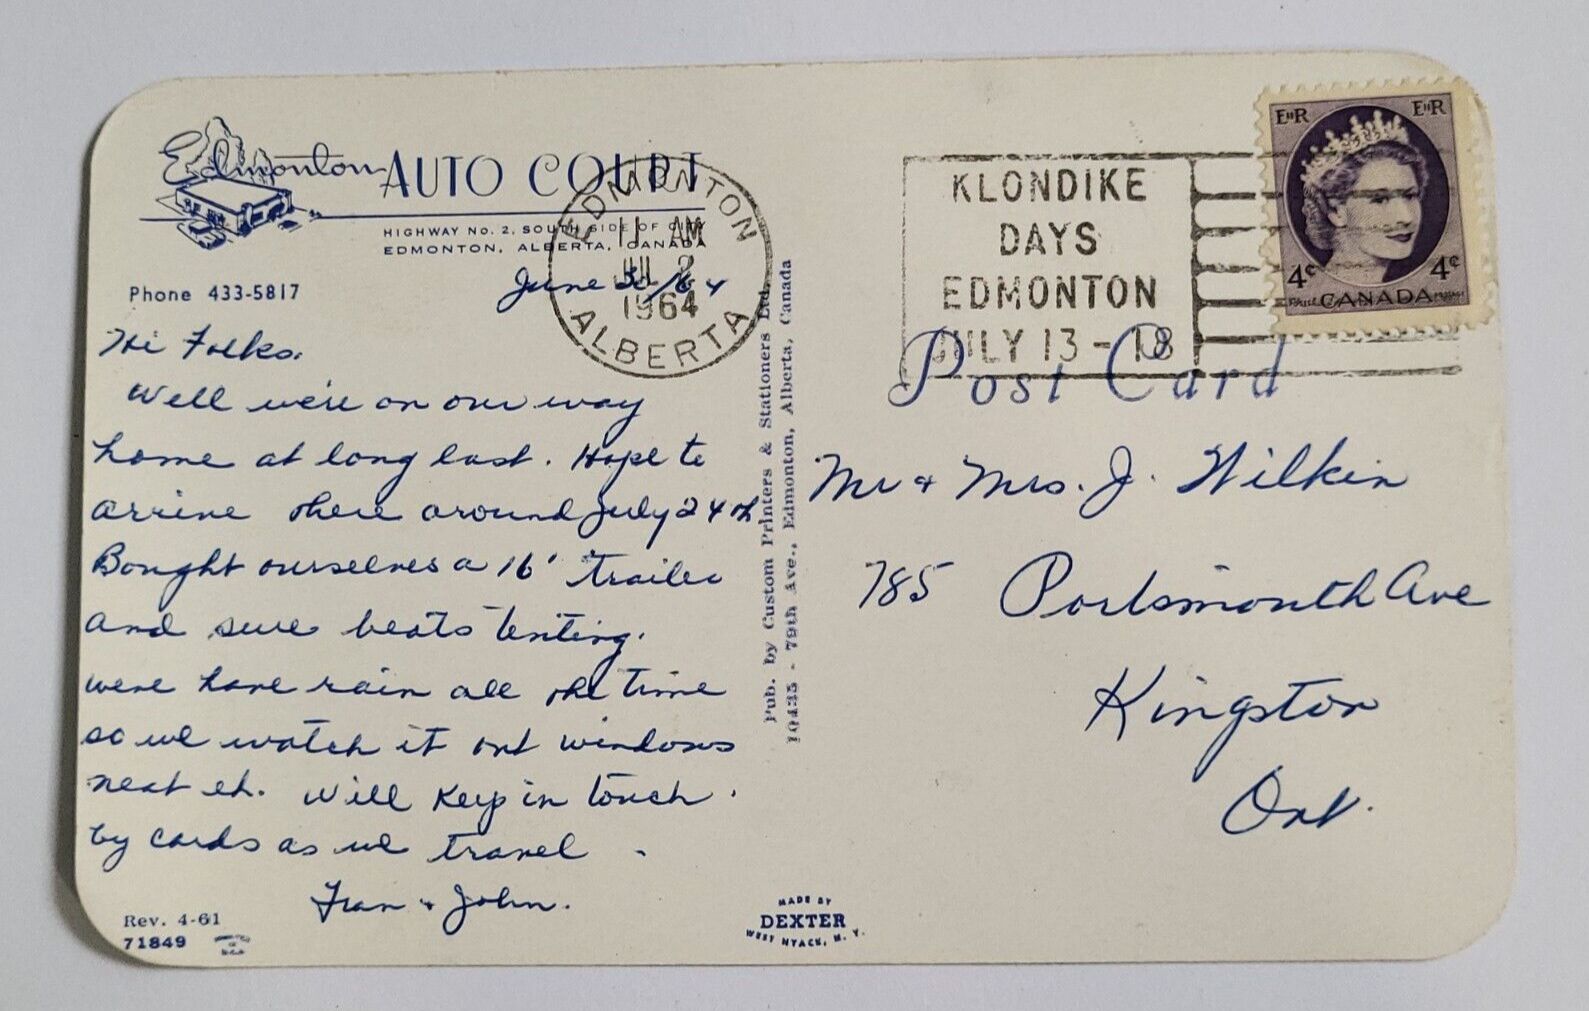 Edmonton AUTO COURT
HIGHWAY No. 2, SOUTH SIDE OF CITY
EDMONTON, ALBERTA, CANADA
Phone 433-5817
June 30/64
Hi Folks.
Well we're on our way
home at long last. Hope to
arrive there around July 24th
Bought ourselves a 16' trailer
and sure beats tenting.
were have rain all the time
so we watch it out windows
neat eh. Will keep in touch.
by cards as we travel.
Fran & John.
Rev. 4-61
71849
EDMONTON
11 AM
JUL 2
1964
ALBERTA
Pub. by Custom Printers & Stationers Ltd.
10435 - 79th Ave., Edmonton, Alberta, Canada
MADE BY
DEXTER
WEST NYACK, N. Y.
KLONDIKE
DAYS
EDMONTON
JULY 13-18
EIIR EIIR
4¢ 4¢
CANADA
Post Card
Mr & Mrs. J. Wilkin
785 Portsmouth Ave
Kingston
Ont.